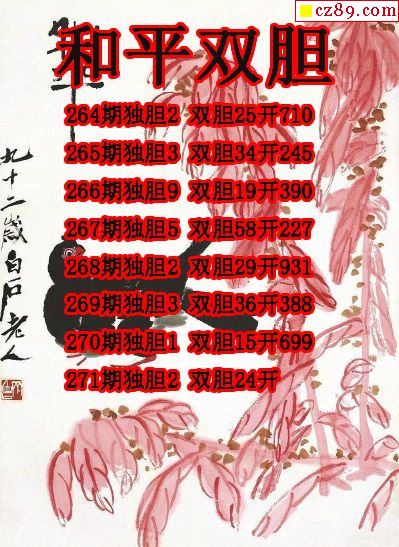 cz89.com
和平双胆
264期独胆2 双胆25开710
265期独胆3 双胆34开245
266期独胆9 双胆19开390
267期独胆5 双胆58开227
268期独胆2 双胆29开931
269期独胆3 双胆36开388
270期独胆1 双胆15开699
271期独胆2 双胆24开
九十二歲白石老人